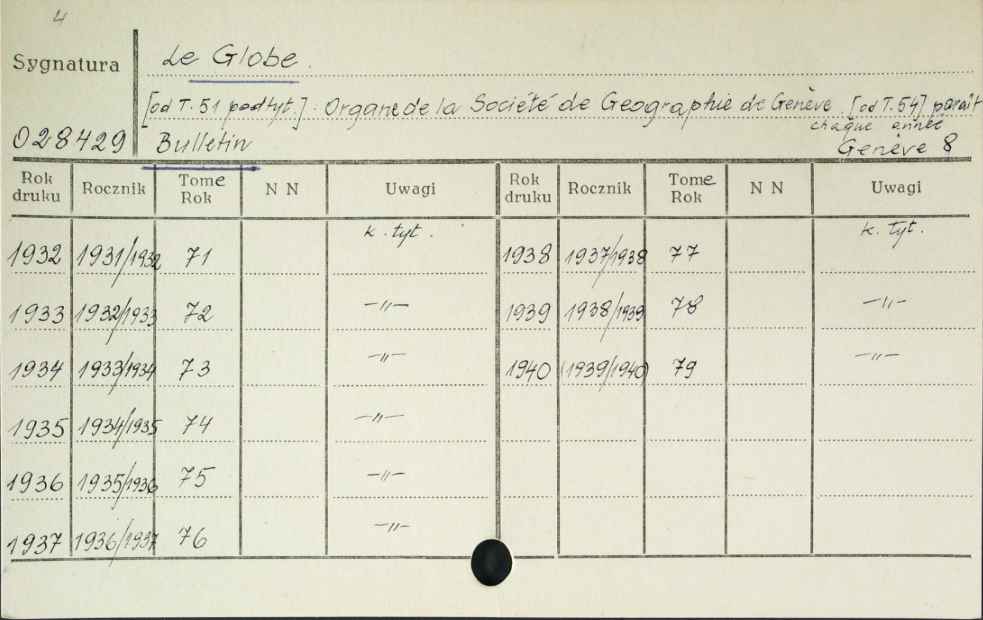 4
Sygnatura Le Globe.
[od T. 51 podtyt.]. Organe de la Société de Geographie de Genève. [od T. 54] paraît
chaque année
028429 Bulletin Genève 8
Rok druku Rocznik Tome Rok N N Uwagi Rok druku Rocznik Tome Rok N N Uwagi
1932 1931/1932 71 k. tyt. 1938 1937/1938 77 k. tyt.
1933 1932/1933 72 –"– 1939 1938/1939 78 –"–
1934 1933/1934 73 –"– 1940 (1939/1940) 79 –"–
1935 1934/1935 74 –"–
1936 1935/1936 75 –"–
1937 1936/1937 76 –"–